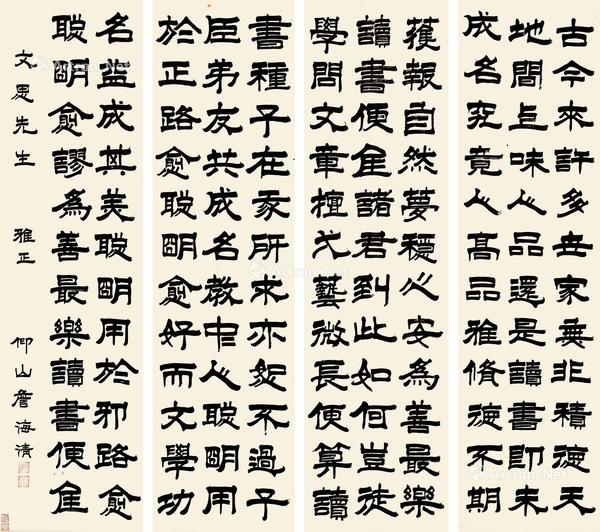 古今來許多世家無非積德天
地間且味人品還是讀書即未
成名究竟人高品雅脩德不期
獲報自然夢穩心安為善最樂
讀書便佳諸君到此如何豈徒
學問文章擅弌藝微長便算讀
書種子在家所求亦恕不過子
臣弟友共成名教中人聰明用
於正路愈聰明愈好而文學功
名益成其美聰明用於邪路愈
聰明愈謬為善最樂讀書便佳
文思先生 雅正 仰山詹海清
Artron.Net